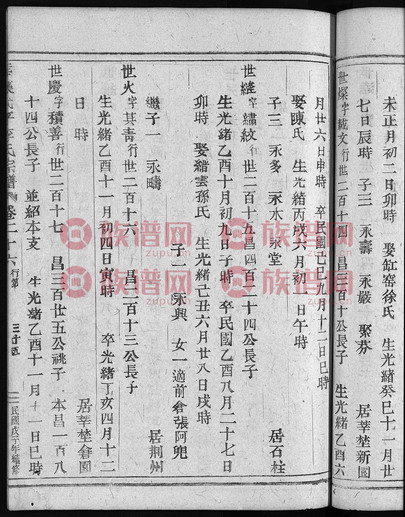 未正月初二日卯時 娶缸窰徐氏 生光緒癸巳十一月廿
七日辰時 子三 永壽 永嚴 聚芬 居莘塾新園
世燦字載文行世二百十四 昌三百十公長子 生光緒乙酉六
月廿六日申時 卒民國己巳十二日巳時
娶陳氏 生光緒丙戌月初一日午時
子三 永多 永水 永堂 居石柱
世維字繡紋行世二百十五昌四百十四公長子
生光緒乙酉十月初九日子時 卒民國乙酉八月二十七日
卯時 娶縉雲孫氏 生光緒己丑六月廿八日戌時
子一 永興 女一適前倉張阿兜
繼子一 永疇 居荆州
世火字其青行世二百十六 昌二百十三公長子
生光緒乙酉十一月初四日寅時 卒光緒丁亥四月十二
日時 居莘塾會園
世慶字積善行世二百十七 昌三百廿五公祧子 本昌一百八
十四公長子 並紹本支 生光緒乙酉十一月十一日巳時
李氏宗譜 卷二十六 行第 三十五 民國戊子年編修
族谱网
ZUPU.CN